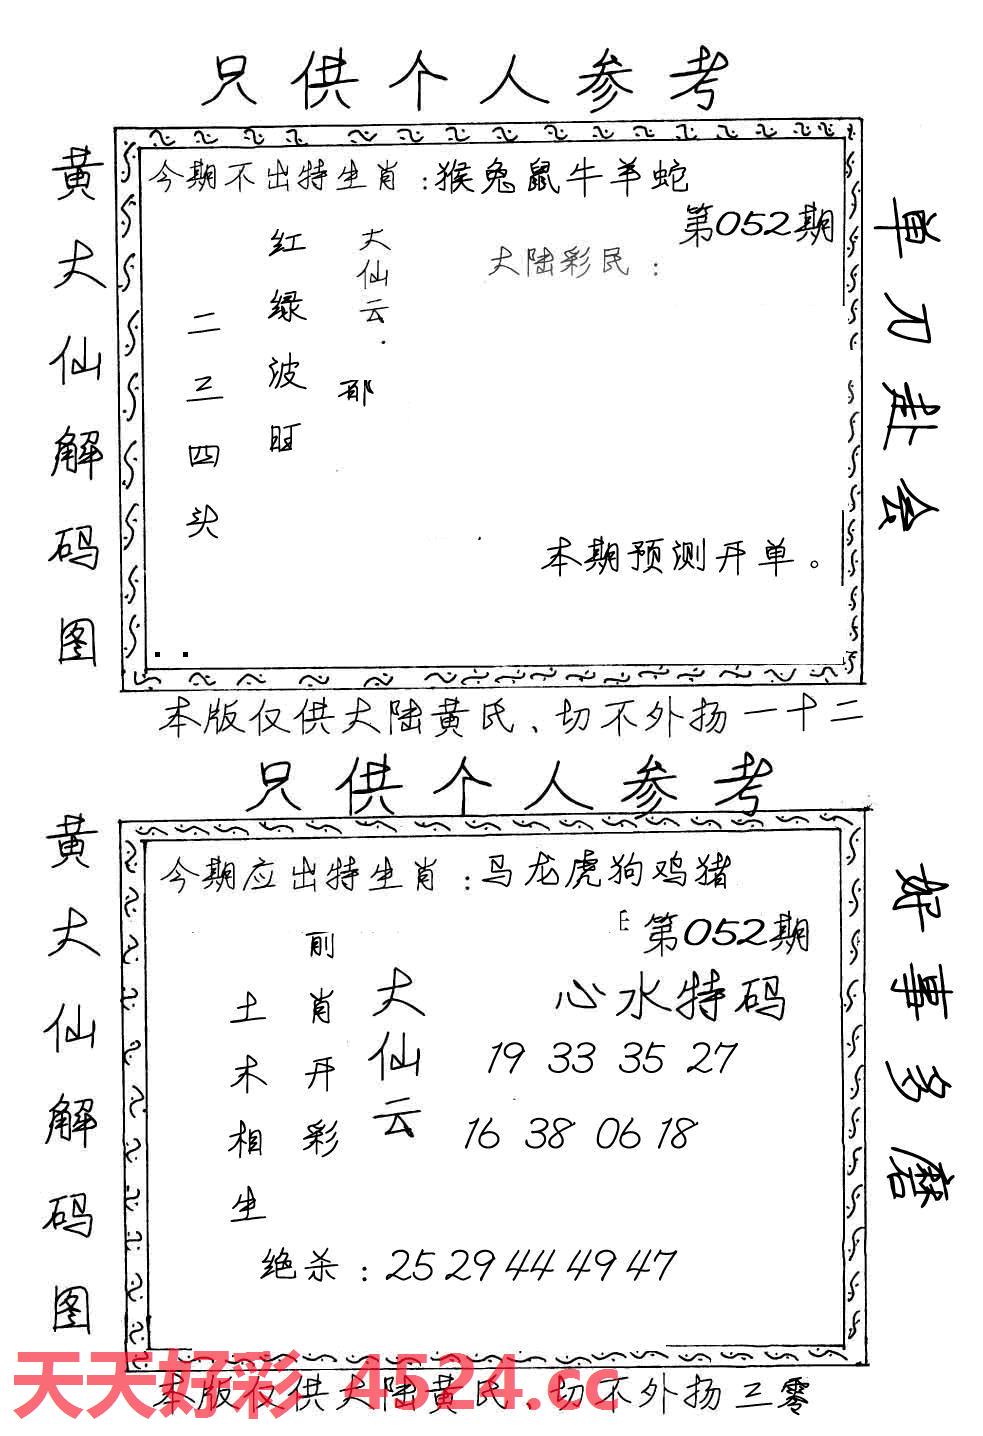 只供个人参考
黄大仙解码图
今期不出特生肖：猴兔鼠牛羊蛇
第052期
大陆彩民：
大仙云．
红绿波旺
二三四头
本期预测开单。
单刀赴会
本版仅供大陆黄氏、切不外扬一十二
只供个人参考
黄大仙解码图
今期应出特生肖：马龙虎狗鸡猪
第052期
心水特码
大仙云
前肖开彩
土木相生
19 33 35 27
16 38 06 18
绝杀：25 29 44 49 47
好事多磨
天天好彩 4524.cc
本版仅供大陆黄氏、切不外扬三零